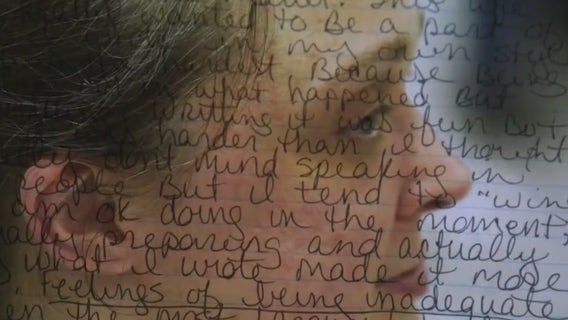 wanted to Be a part of
in my own
Because Being
what happened But
Writing it was fun But
harder than I thought
dont mind speaking in
people But I tend to "win
am ok doing in the moment"
preparing and actually
what I wrote made it more
Feelings of being inadequate
the most